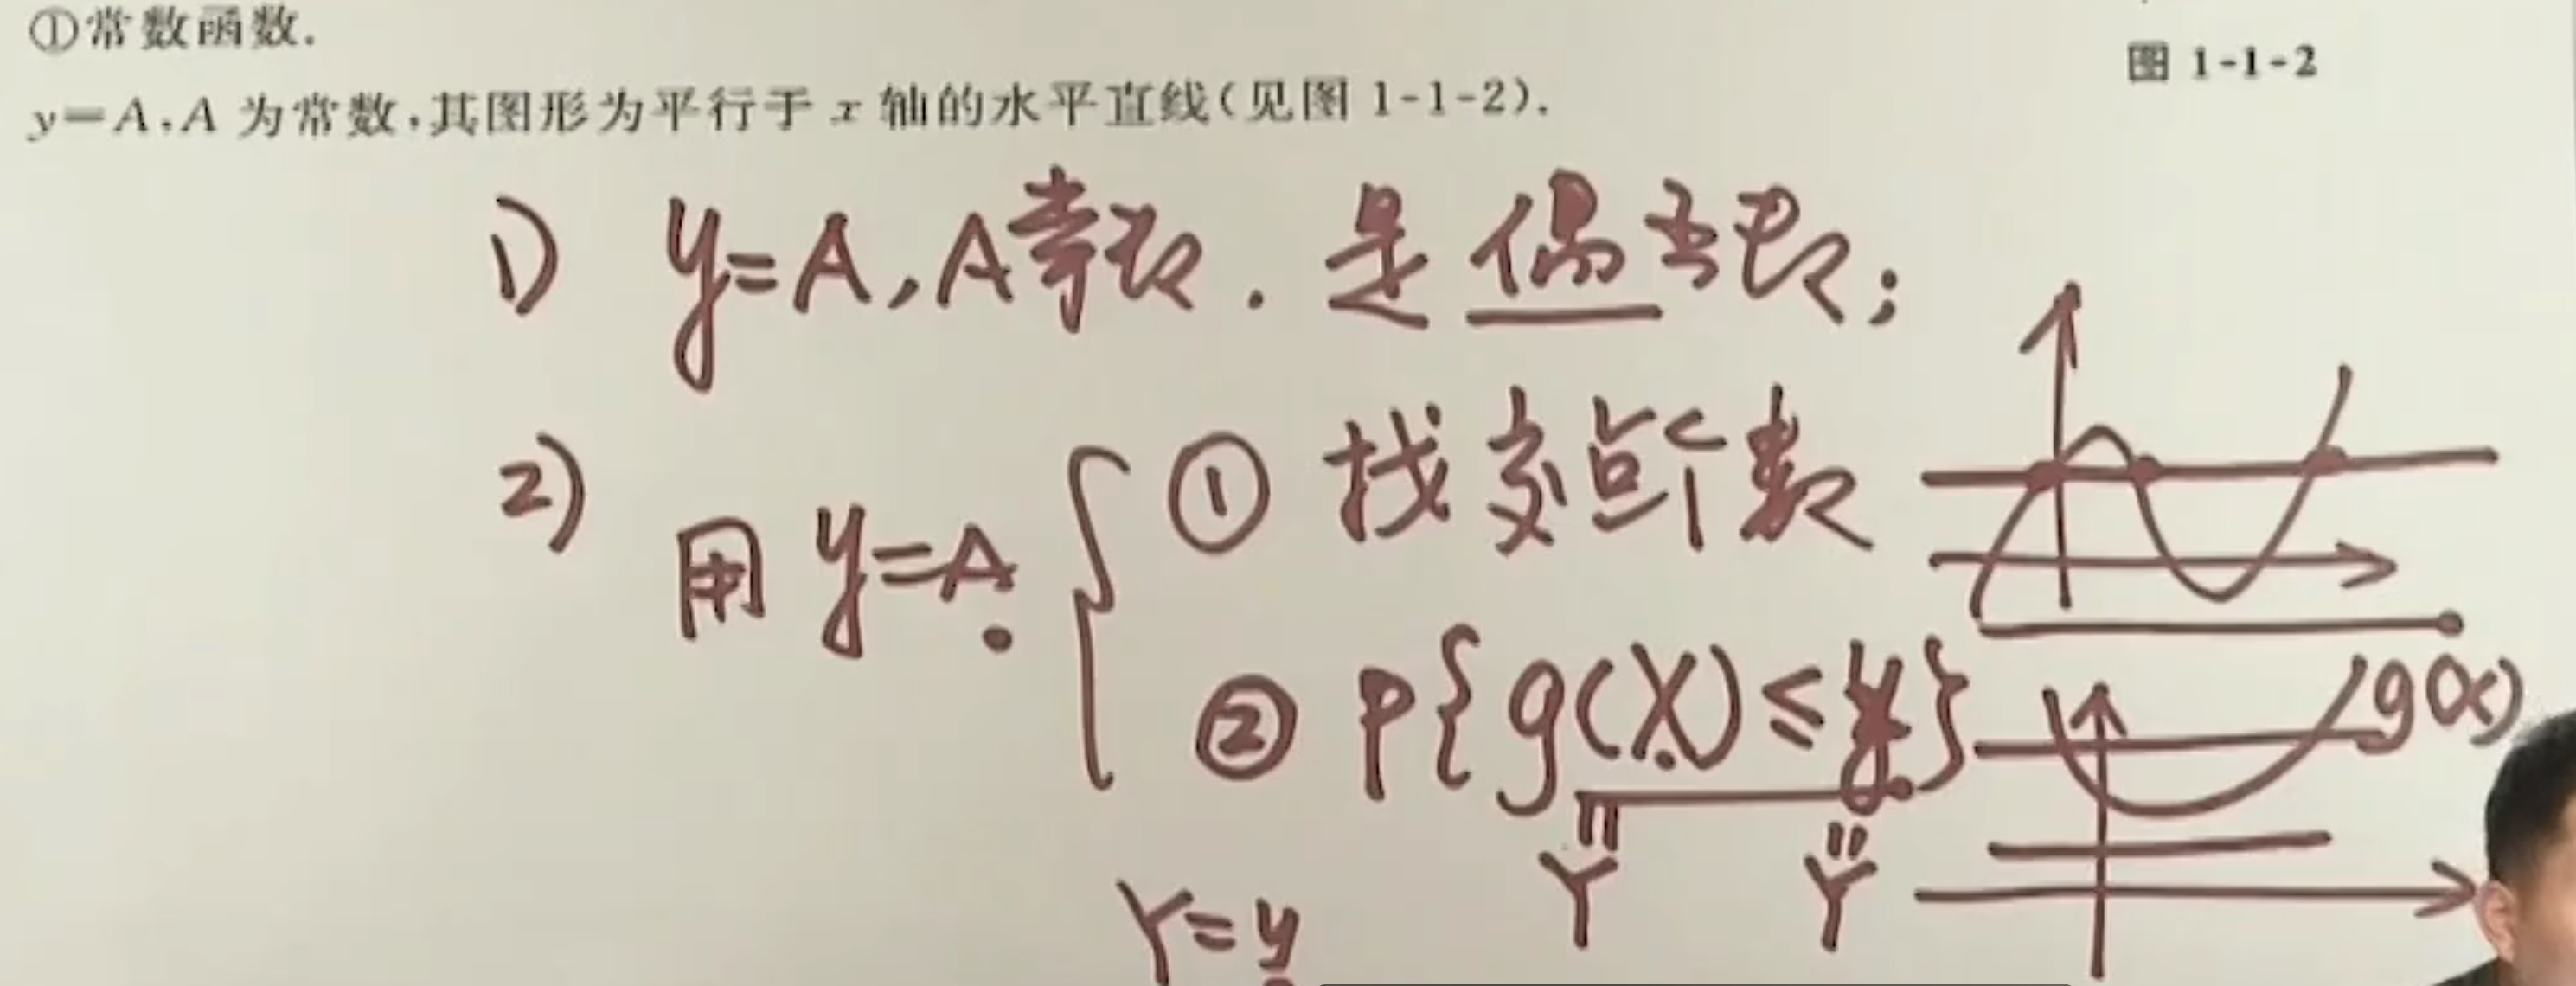 ①常数函数.
图 1-1-2
y=A,A 为常数,其图形为平行于 x 轴的水平直线(见图 1-1-2).
1) y=A,A常数. 是偶函数;
2) 用 y=A.
① 找交点个数
② P{g(X)≤y}
g(x)
Y Y
Y=y